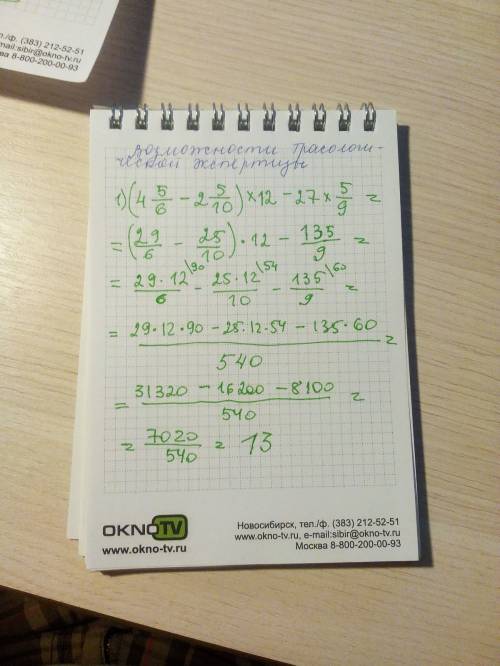 л./ф. (383) 212-52-51
mail:sibir@okno-tv.ru
ва 8-800-200-00-93
возможности трасологи-
ческой экспертизы
1) (4 5/6 − 2 5/10) × 12 − 27 × 5/9 =
= (29/6 − 25/10) · 12 − 135/9 =
= 29·12/6 \90 − 25·12/10 \54 − 135/9 \60 =
= 29·12·90 − 25·12·54 − 135·60 / 540 =
= 31320 − 16200 − 8100 / 540 =
= 7020/540 = 13
OKNOTV
www.okno-tv.ru
Новосибирск, тел./ф. (383) 212-52-51
www.okno-tv.ru, e-mail:sibir@okno-tv.ru
Москва 8-800-200-00-93